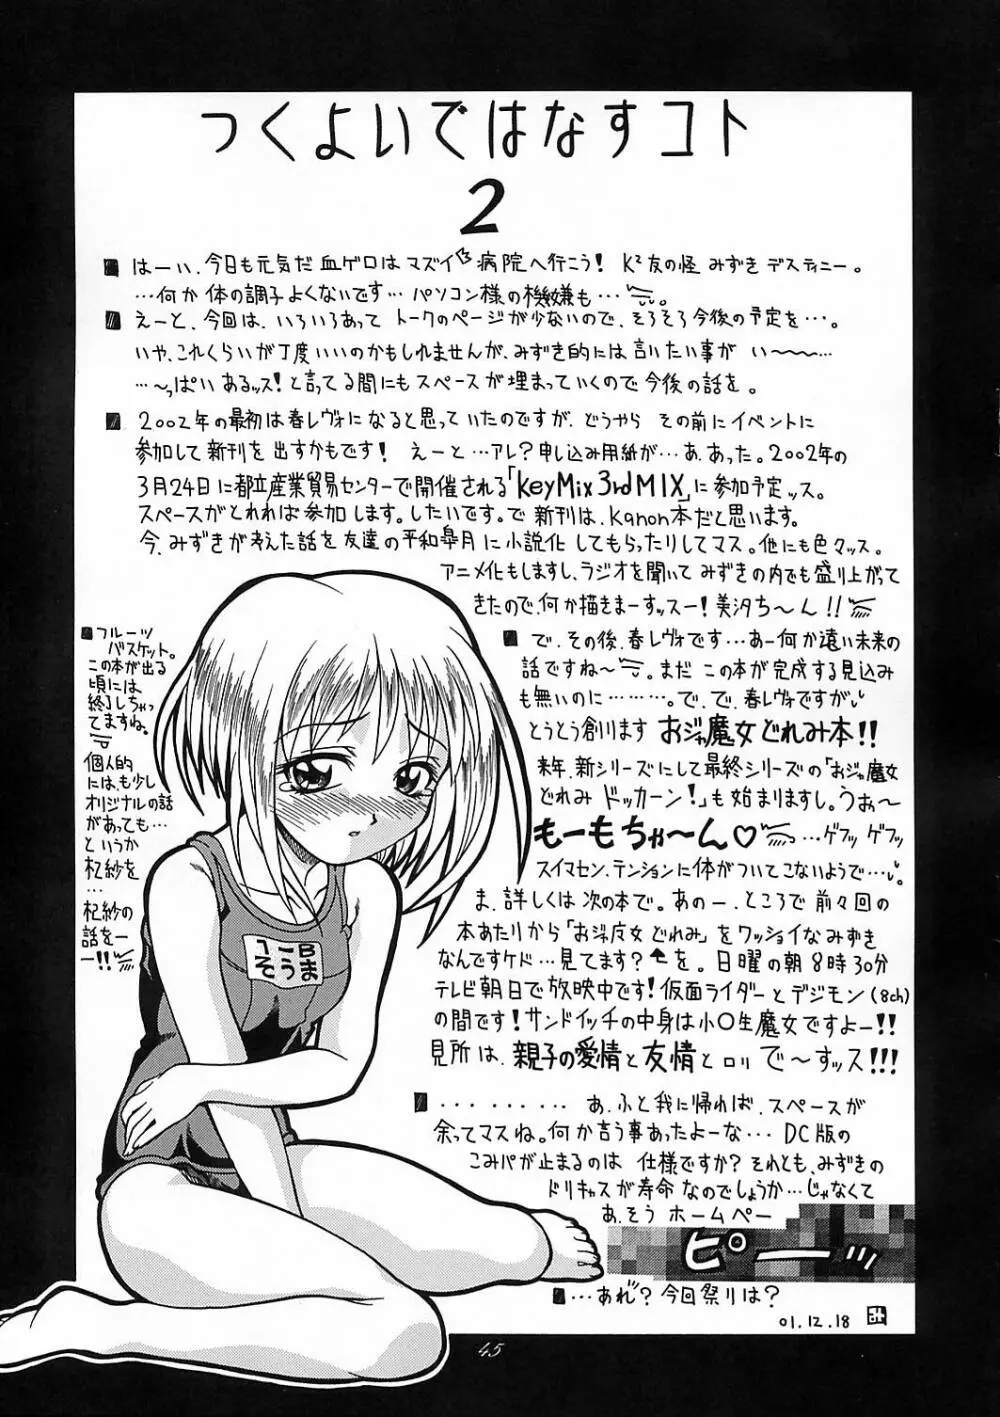 つくよいではなすコト
2
■ はーい、今日も元気だ血ゲロはマズイ 病院へ行こう! K²友の怪 みずき デスティニー。
…何か 体の調子 よくないです… パソコン様の機嫌も…。
■ えーと、今回は、いろいろあって トークのページが少ないので、そろそろ今後の予定を…。
いや、これくらいが丁度いいのかもしれませんが、みずき的には言いたい事が い〜〜…
…〜っぱい あるッス! と言ってる間にもスペースが埋まっていくので今後の話を。
■ 2002年の最初は春レヴォになると思っていたのですが、どうやら その前にイベントに
参加して新刊を出すかもです! えーと…アレ?申し込み用紙が…あ、あった。2002年の
3月24日に都立産業貿易センターで開催される「KeyMix 3rd MIX」に参加予定ッス。
スペースがとれれば参加します。したいです。で 新刊は、Kanon本だと思います。
今、みずきが考えた話を友達の平和皐月に小説化してもらったりしてマス。他にも色々ッス。
アニメ化もしますし、ラジオを聞いてみずきの内でも盛り上がって
きたので、何か描きまーすッスー! 美汐ち〜ん!!
■ で、その後、春レヴォです…あー何か遠い未来の
話ですね〜。まだ この本が完成する見込みも
無いのに………。で、で、春レヴォですが、
とうとう創ります おジャ魔女どれみ本!!
来年、新シリーズにして最終シリーズの「おジャ魔女
どれみ ドッカーン!」も始まりますし。うぉ〜
もーもちゃ〜ん♡ …ゲフッ ゲフッ
スイマセン、テンションに体がついてこないようで…。
ま、詳しくは次の本で。あのー、ところで前々回の
本あたりから「おジャ魔女どれみ」をワッショイなみずき
なんですケド…見てます?↑を。日曜の朝8時30分
テレビ朝日で放映中です! 仮面ライダーとデジモン(8ch)
の間です! サンドイッチの中身は小〇生魔女ですよー!!
見所は、親子の愛情と友情とロリ で〜すッス!!!
■ ………… あ、ふと我に帰れば、スペースが
余ってマスね。何か言う事あったよーな… DC版の
こみパが止まるのは 仕様ですか? それとも、みずきの
ドリキャスが寿命なのでしょうか…じゃなくて
あ、そう ホームペー
ピーッ
■ …あれ? 今回祭りは?
01.12.18
■ フルーツ
バスケット。
この本が出る
頃には
終了しちゃっ
てますね。
個人的
には、も少し
オリジナルの話
があっても…
というか
杞紗を
…
杞紗の
話をー
ー!!
1-B
そうま
45